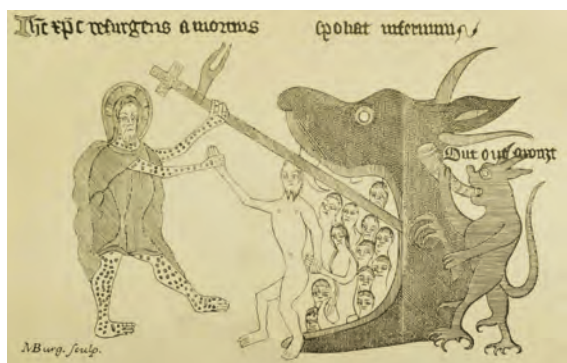 Ihc xpc resurgens a mortuis spoliat infernum
Out out aronzt
MBurg. sculp.